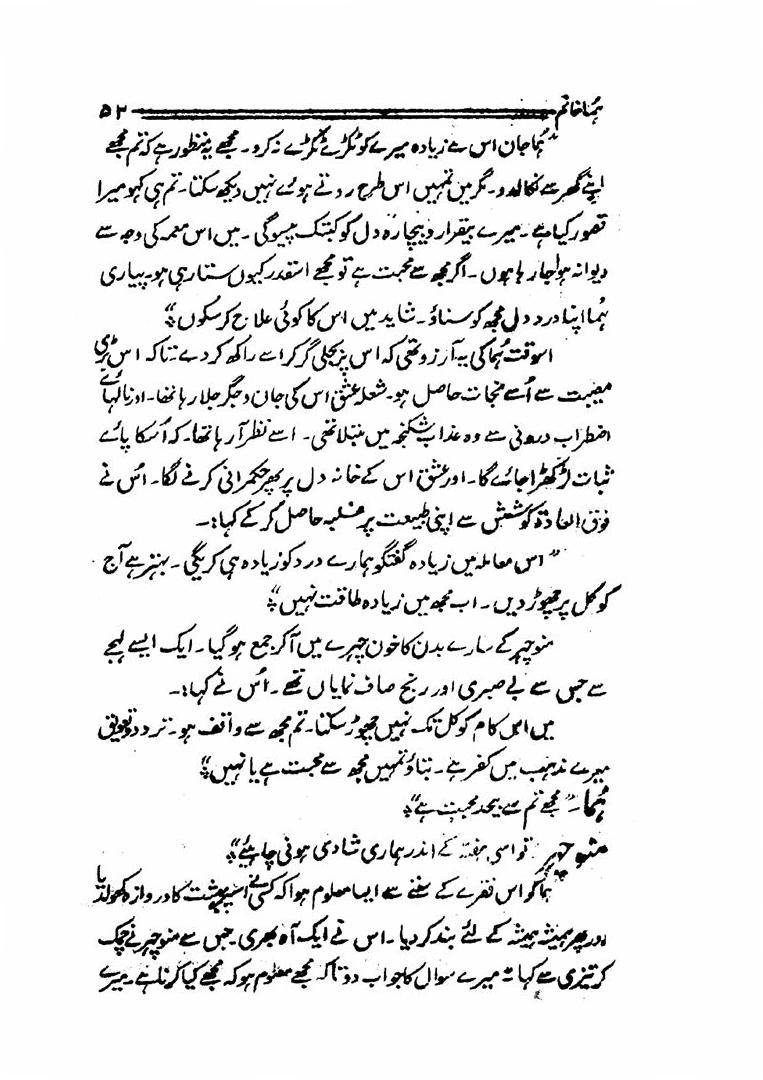 ہُما خانم ۵۲
"ہُما جان اس سے زیادہ میرے کو ٹکڑے ٹکڑے نہ کرو۔ مجھے یہ منظور ہے کہ تم مجھے
اپنے گھر سے نکالدو۔ مگر میں تمہیں اس طرح روتے ہوئے نہیں دیکھ سکتا۔ تم ہی کہو میرا
قصور کیا ہے۔ میرے بیقرار دبیچارہ دل کو کبتک پیسوگی۔ میں اس معمہ کی وجہ سے
دیوانہ ہوا جا رہا ہوں۔ اگر مجھ سے محبت ہے تو مجھے اسقدر کیوں ستا رہی ہو۔ پیاری
ہُما اپنا درد دل مجھ کو سناؤ۔ شاید میں اس کا کوئی علاج کر سکوں"؛
اسوقت ہُما کی یہ آرزو تھی کہ اس پر بجلی گر کر اسے راکھ کر دے۔ تاکہ اس بڑی
مصیبت سے اُسے نجات حاصل ہو۔ شعلہ عشق اس کی جان و جگر جلا رہا تھا۔ اور نالہائے
اضطراب درونی سے وہ عذاب شکنجہ میں مبتلا تھی۔ اسے نظر آ رہا تھا۔ کہ اُسکا پائے
ثبات لڑکھڑا جائے گا۔ اور عشق اس کے خانہ دل پر پھر حکمرانی کرنے لگا۔ اُس نے
فوق العادۃ کوشش سے اپنی طبیعت پر غلبہ حاصل کر کے کہا:۔
"اس معاملہ میں زیادہ گفتگو ہمارے درد کو زیادہ ہی کریگی۔ بہتر ہے آج
کو کل پر چھوڑ دیں۔ اب مجھ میں زیادہ طاقت نہیں"؛
منوچہر کے سارے بدن کا خون چہرے میں آ کر جمع ہو گیا۔ ایک ایسے لہجے
سے جس سے بے صبری اور رنج صاف نمایاں تھے۔ اُس نے کہا:۔
میں اس کام کو کل تک نہیں چھوڑ سکتا۔ تم مجھ سے واقف ہو۔ تردد و تعویق
میرے مذہب میں کفر ہے۔ بتاؤ تمہیں مجھ سے محبت ہے یا نہیں"؛
ہُما۔ "مجھے تم سے بیحد محبت ہے"؛
منوچہر "تو اسی ہفتہ کے اندر ہماری شادی ہونی چاہئے"؛
ہُما کو اس فقرے کے سننے سے ایسا معلوم ہوا کہ کسی نے اسپر بہشت کا دروازہ کھولدیا
اور پھر ہمیشہ ہمیشہ کے لئے بند کر دیا۔ اس نے ایک آہ بھری۔ جس سے منوچہر نے چمک
کر تیزی سے کہا "میرے سوال کا جواب دو تاکہ مجھے معلوم ہو کہ مجھے کیا کرنا ہے۔ میرے